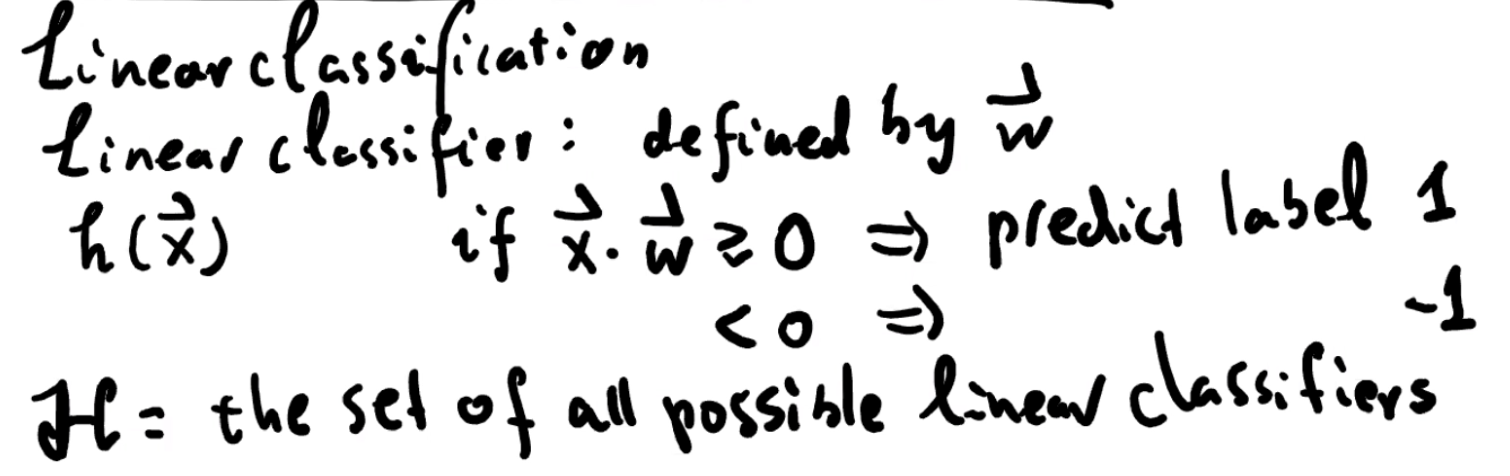 Linear classification
Linear classifier: defined by w⃗
h(x⃗) if x⃗·w⃗ ≥ 0 ⇒ predict label 1
< 0 ⇒ -1
ℋ = the set of all possible linear classifiers